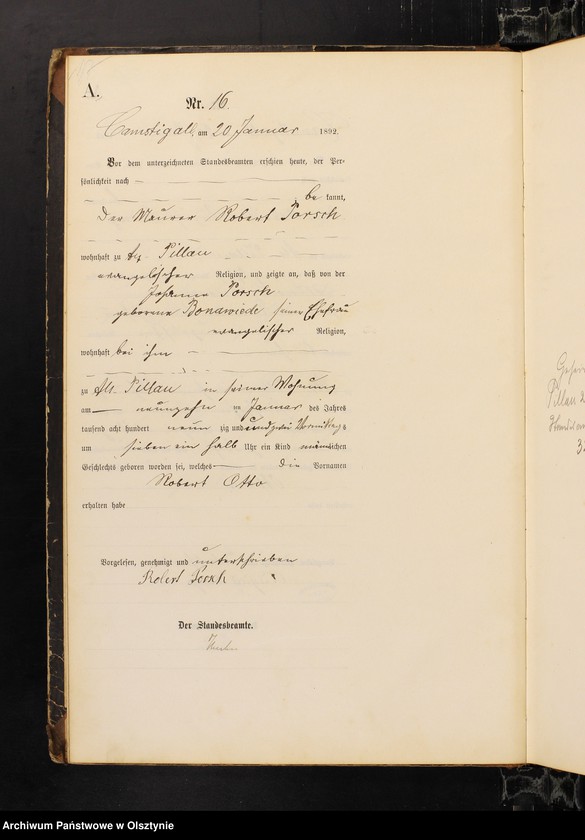 A.
Nr. 16.
Camstigall, am 20 Januar 1892.
Vor dem unterzeichneten Standesbeamten erschien heute, der Per-
sönlichkeit nach
be kannt,
der Maurer Robert Porsch
wohnhaft zu Alt Pillau
evangelischer Religion, und zeigte an, daß von der
Johanna Porsch
geborene Bonawiede seiner Ehefrau
evangelischer Religion,
wohnhaft bei ihm
zu Alt Pillau in seiner Wohnung
am neunzehn ten Januar des Jahres
tausend acht hundert neun zig und zwei Vormittags
um sieben ein halb Uhr ein Kind männlichen
Geschlechts geboren worden sei, welches die Vornamen
Robert Otto
erhalten habe
Vorgelesen, genehmigt und unterschrieben
Robert Porsch
Der Standesbeamte.
Pillau 2
3.
Archiwum Państwowe w Olsztynie